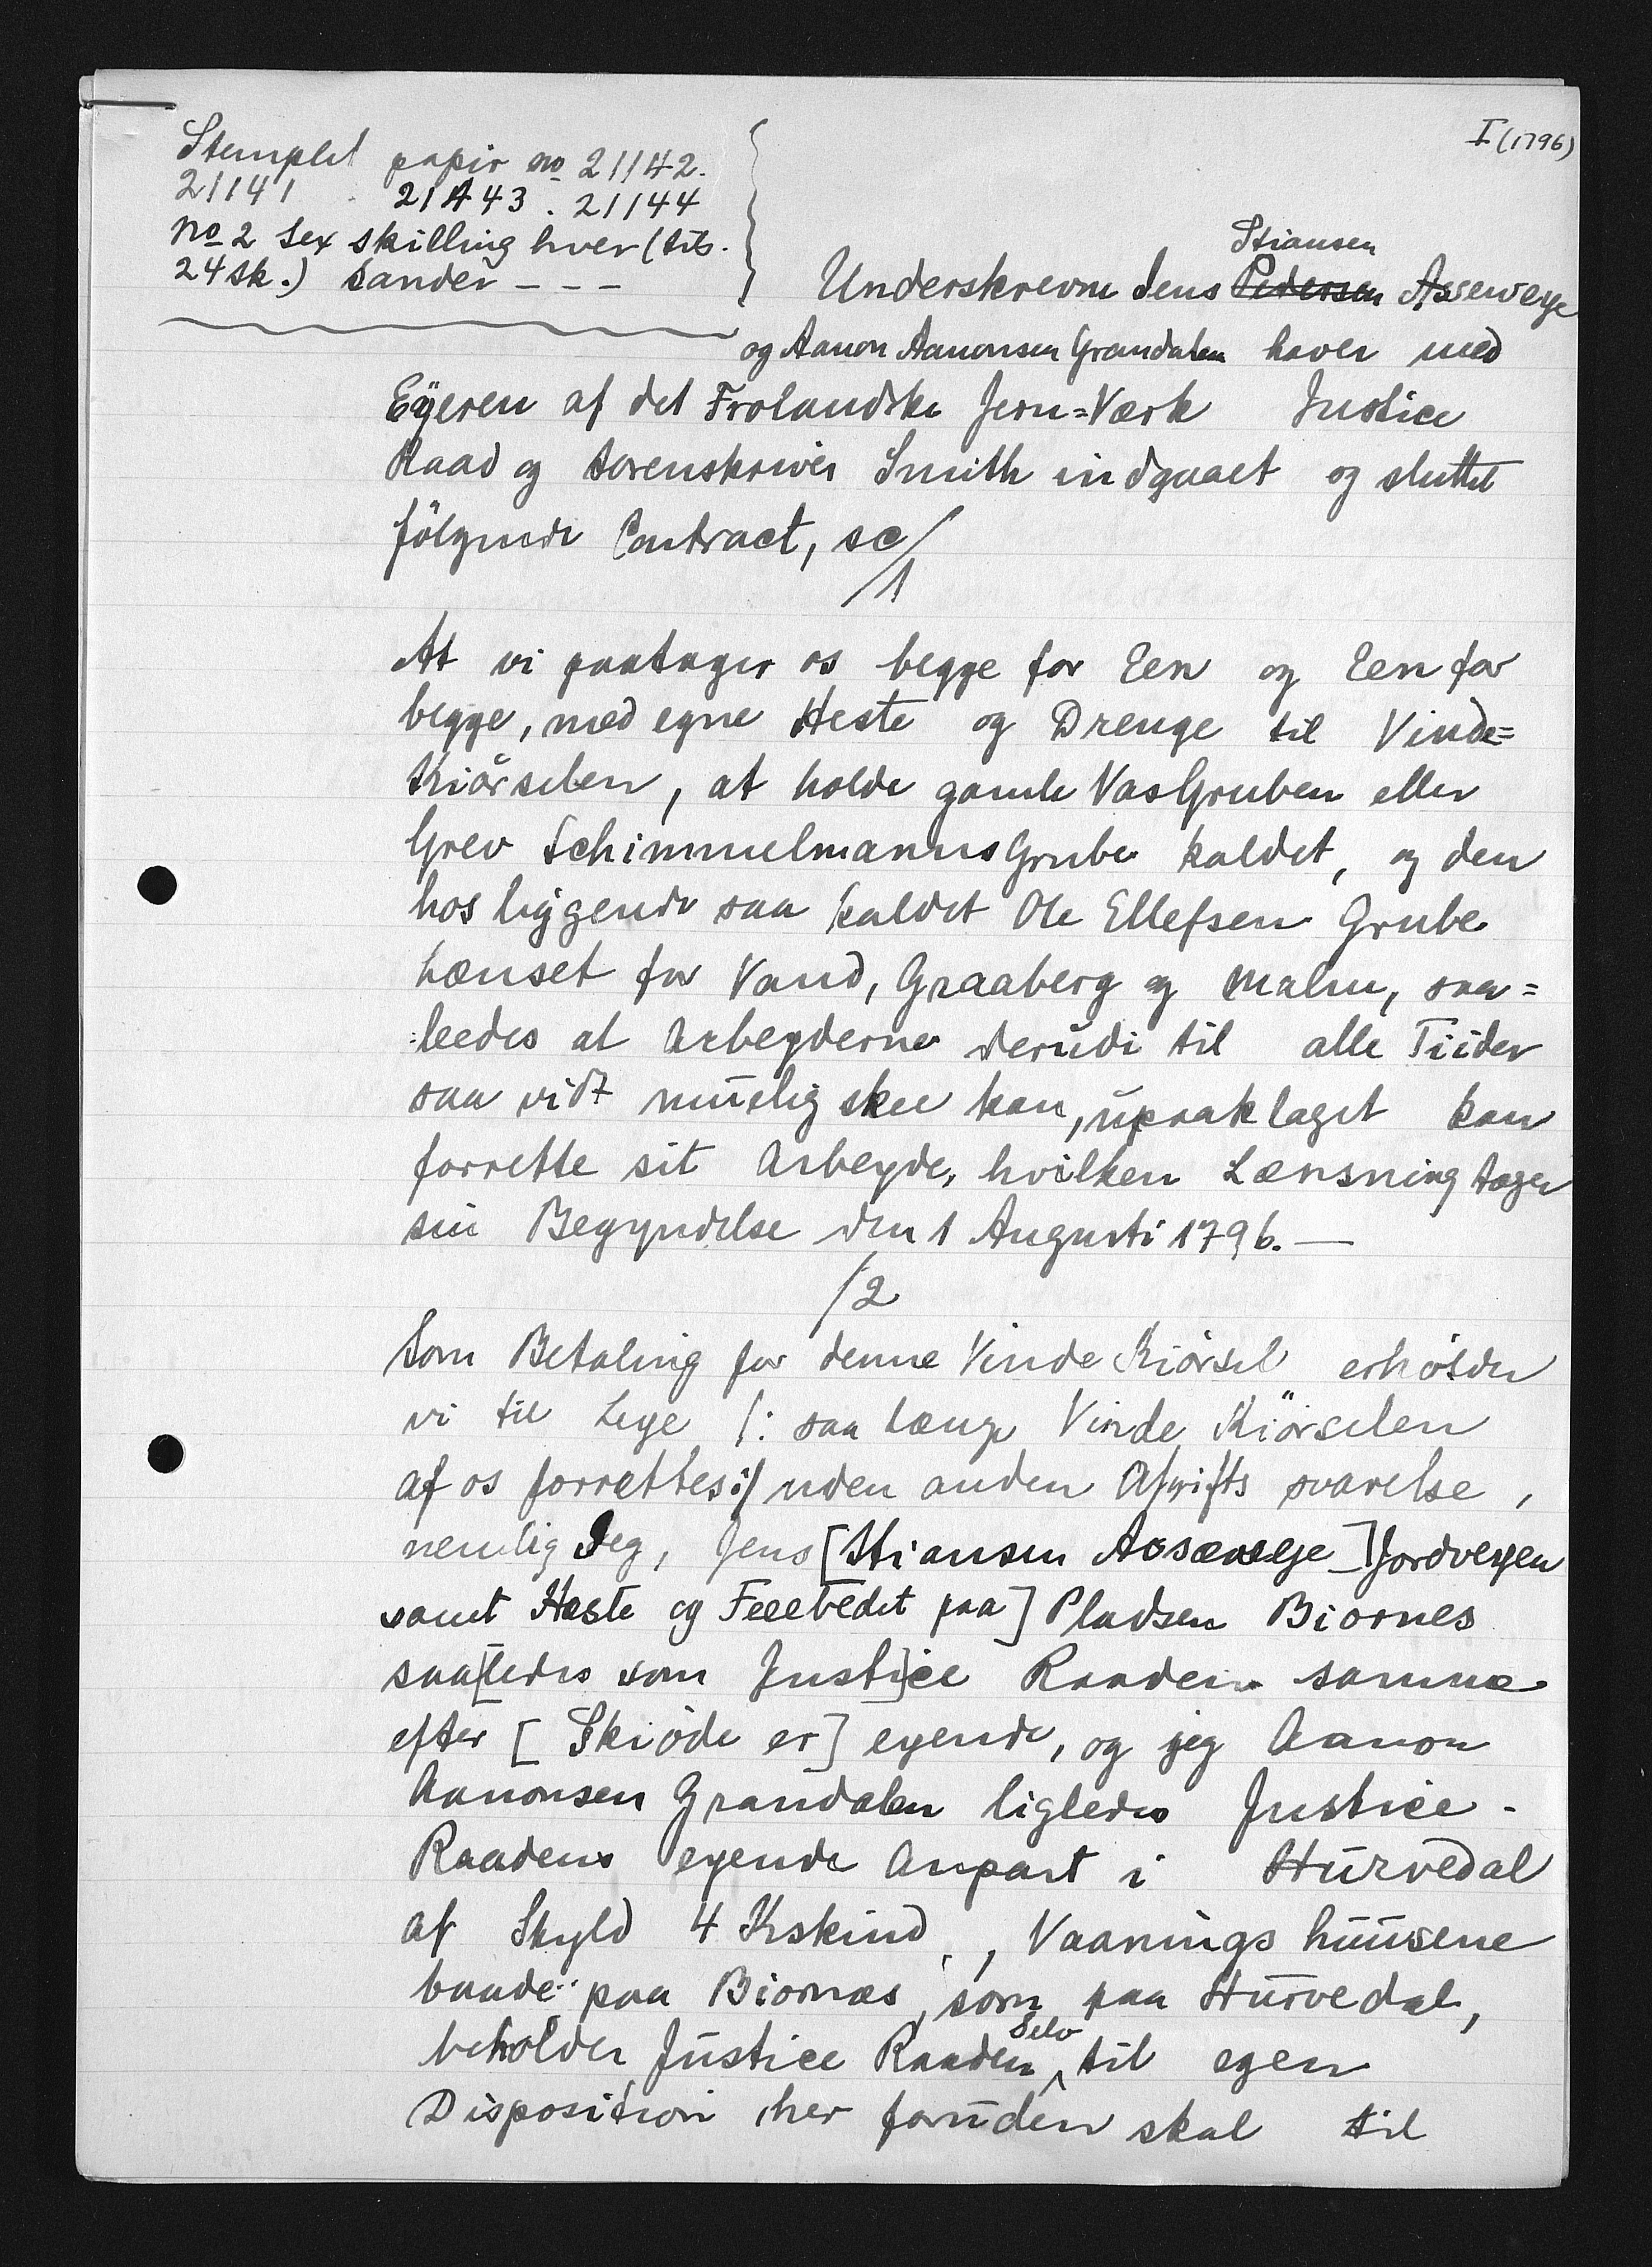 I (1796)
Stemplet papir no 21142.
21141 . 21143 . 21144
No 2 Sex skilling hver (tils.
24 sk.) Sander - - -
Stiansen
Underskrevne Jens Pedersen Asseveye
og Aanon Aanonsen Grandalen haver med
Eÿeren af det Frolandske Jern=Værk Justice
Raad og Sorenskriver Smith indgaaet og sluttet
følgende Contract, sc/
/1
At vi paatager os begge for Een og Een for
begge, med egne Heste og Drenge til Vinde=
Kiörselen, at holde gamle VasGruben eller
Grev SchimmelmannsGrube kaldet, og den
hos liggende saa kaldet Ole Ellefsen Grube
lænset for Vand, Graaberg og Malm, saa=
:leedes at Arbeyderne derudi til alle Tiider
saa vidt muelig skee kan, upaaklaget kan
forrette sit Arbeyde, hvilken Lænsning tager
sin Begyndelse den 1 Augusti 1796. —
/2
Som Betaling for denne Vinde Kiörsel erholder
vi til Leye /: saa længe Vinde Kiörselen
af os forrettes :/ uden anden Afgifts svarelse,
nemlig Jeg, Jens [Stiansen Aosæveye] Jordveyen
samt Heste og Feebedet paa] Pladsen Biornes
saa[ledes som Justi]ce Raaden samme
efter [Skiøde er] eyende, og jeg Aanon
Aanonsen Grandalen ligledes Justice-
Raadens eyende Anpart i Hurvedal
af Skyld 4 Kskind, Vaanings huusene
baade paa Biornæs, som paa Hurvedal,
Selv
beholder Justice Raaden ^ til egen
Disposition, her foruden skal til